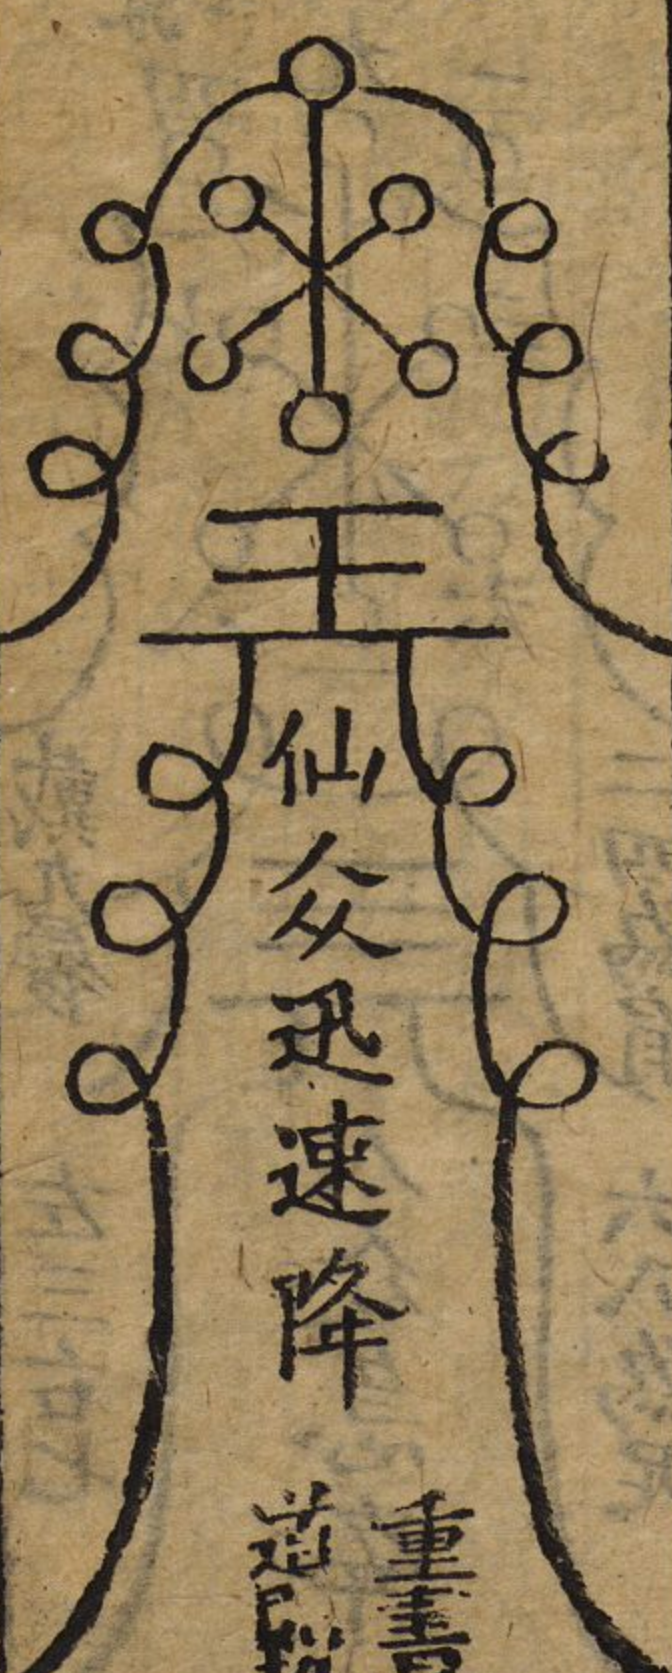 王
仙众迅速降
重書
道